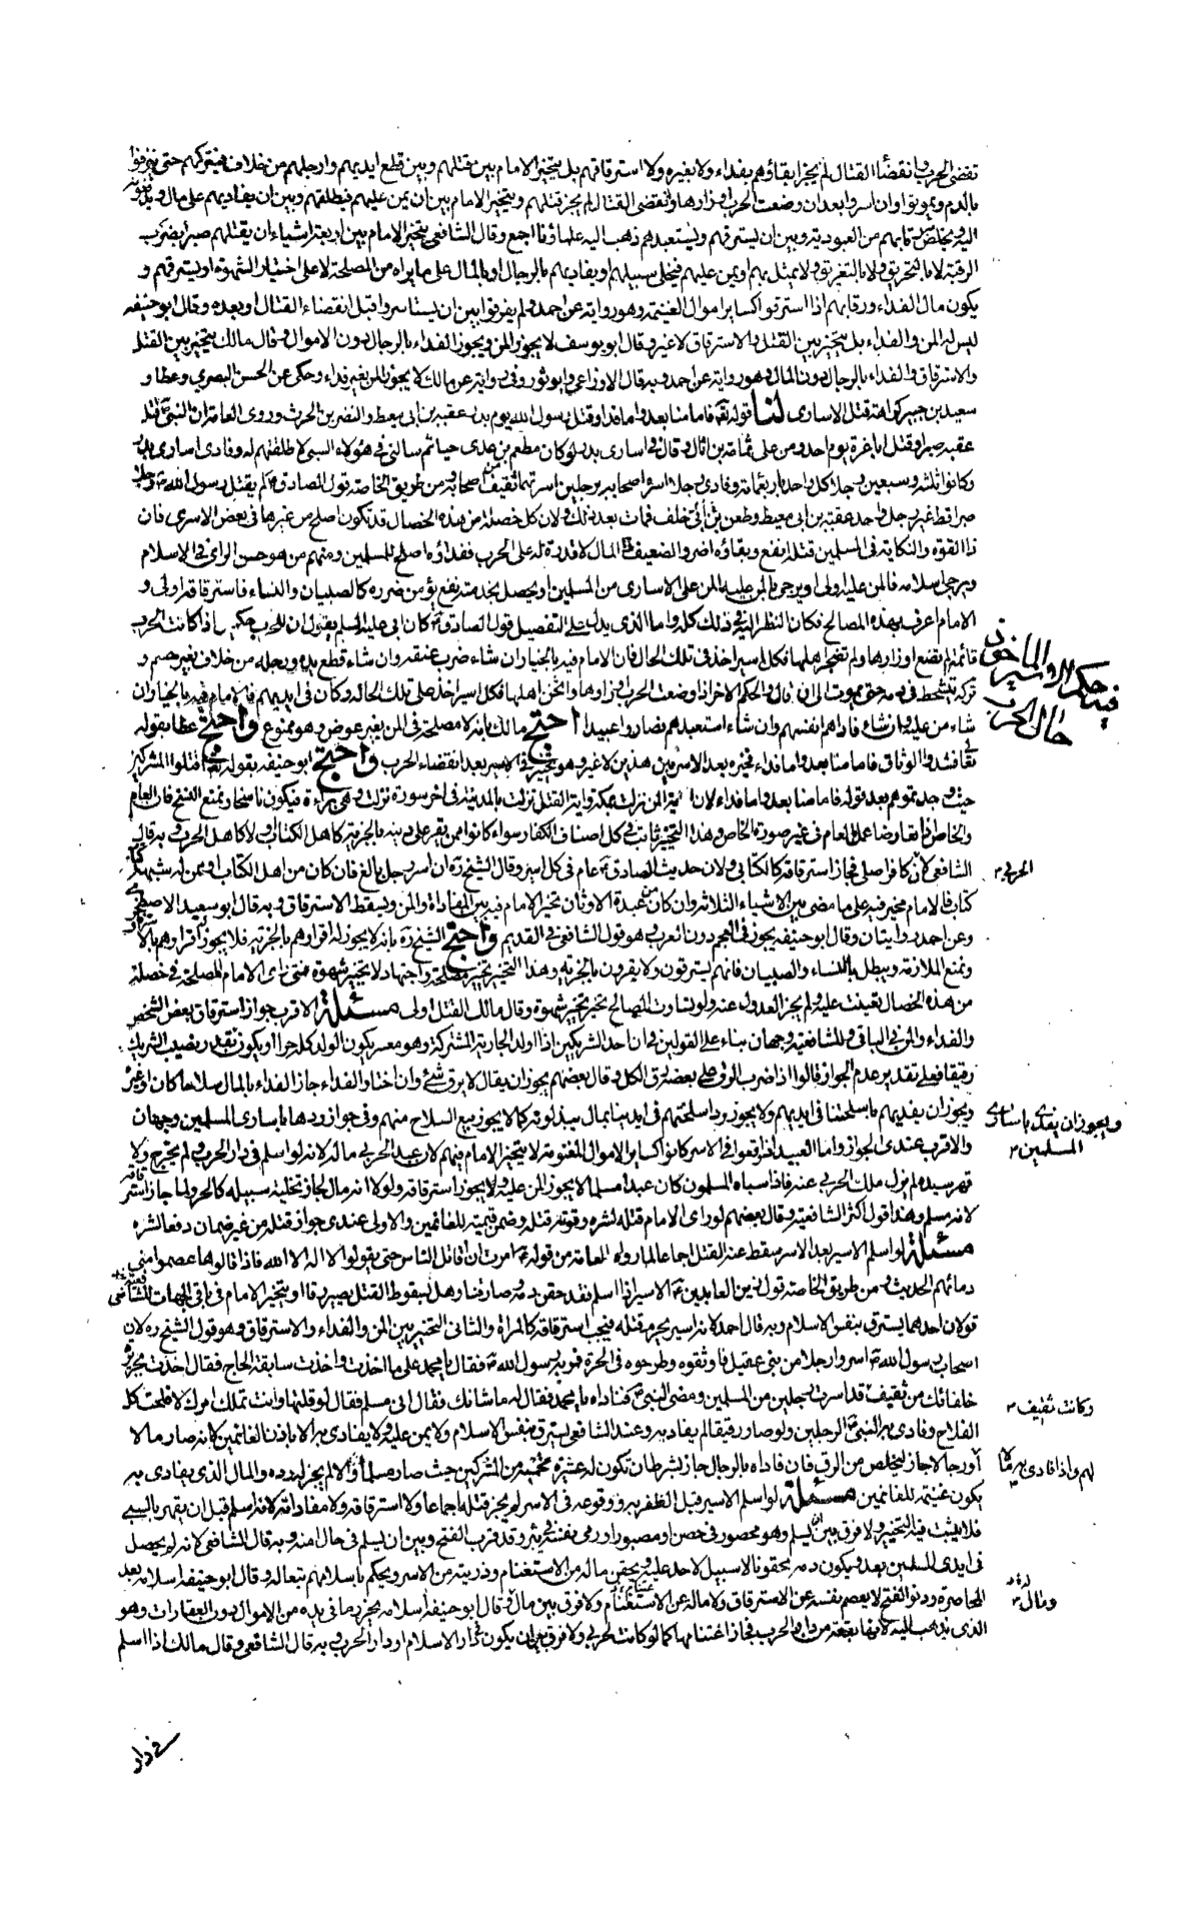 تقضى الحرب وانقضاء القتال لم يجز ابقاؤهم بفداء ولا بغيره ولا استرقاقهم بل يتخير الامام بين قتلهم وبين قطع ايديهم وارجلهم من خلاف فيتركهم حتى ينزفوا
بالدم ويموتوا وان اسروا بعد ان وضعت الحرب اوزارها وانقضى القتال لم يجز قتلهم ويتخير الامام بين ان يمن عليهم فيطلقهم وبين ان يفاديهم على مال يدفعونه
اليه ويخلص رقابهم من العبودية وبين ان يسترقهم ويستعبدهم ذهب اليه علماؤنا اجمع وقال الشافعي يتخير الامام بين اربعة اشياء ان يقتلهم صبرا بضرب
الرقبة لا بالتحريق ولا بالتغريق ولا يمثل بهم او يمن عليهم فيخلى سبيلهم او يفاديهم بالرجال او بالمال على ما يراه من المصلحة لا على اختيار الشهوة او يسترقهم و
يكون مال الفداء ورقابهم اذا استرقوا كساير اموال الغنيمة وهو رواية عن احمد ولم يفرقوا بين ان يستاسروا قبل انقضاء القتال او بعده وقال ابو حنيفه
ليس له المن والفداء بل يتخير بين القتل والاسترقاق لا غير وقال ابو يوسف لا يجوز المن ويجوز الفداء بالرجال دون الاموال وقال مالك يتخير بين القتل
والاسترقاق والفداء بالرجال دون المال وهو رواية عن احمد وبه قال الاوزاعي وابو ثور وفى رواية عن مالك لا يجوز المن بغير فداء وحكى عن الحسن البصري وعطا و
سعيد بن جبير كراهة قتل الاسارى لنا قوله تع فاما منا بعد واما فداء وقتل رسول الله يوم بدر عقبة بن ابى معيط والنضر بن الحرث وروى العامة ان النبى ص قتل
عقبة صبرا وقتل ابا غرة يوم احد ومن على ثمامة بن اثال وقال فى اسارى بدر لو كان مطعم بن عدى حيا ثم سالنى فى هؤلاء السبى لاطلقتهم له وفادى اسارى بدر
وكانوا ثلثة وسبعين رجلا كل واحد باربعمائة وفادى رجلا اسره اصحابه برجلين اسرتهما ثقيف من اصحابه ومن طريق الخاصة قول الصادق ع لم يقتل رسول الله ص رجلا
صبرا قط غير رجل واحد عقبة بن ابى معيط وطعن ابن ابى خلف فمات بعد ذلك ولان كل خصلة من هذه الخصال قد تكون اصلح من غيرها فى بعض الاسرى فان
ذا القوة والنكاية فى المسلمين قتله انفع وبقاؤه اضر والضعيف ذا المال لا قدرة له على الحرب ففداؤه اصلح للمسلمين ومنهم من هو حسن الراى فى الاسلام
ويرجى اسلامه فالمن عليه اولى او يرجى بالمن عليه المن على الاسارى من المسلمين او يحصل بخدمته نفع يؤمن ضرره كالصبيان والنساء فاسترقاقه اولى و
الامام اعرف بهذه المصالح فكان النظر اليه فى ذلك كله واما الذى يدل على التفصيل قول الصادق ع كان ابى عليه السلم يقول ان للحرب حكمين اذا كانت الحرب
قائمة لم تضع اوزارها ولم تضجر اهلها فكل اسير اخذ فى تلك الحال فان الامام فيه بالخيار ان شاء ضرب عنقه وان شاء قطع يده ورجله من خلاف بغير حسم و
تركه يتشحط فى دمه حتى يموت الى ان قال والحكم الاخر اذا وضعت الحرب اوزارها واثخن اهلها فكل اسير اخذ على تلك الحال وكان فى ايديهم فالامام فيه بالخيار ان
شاء من عليه وان شاء فاداهم انفسهم وان شاء استعبدهم فصاروا عبيدا احتج مالك بانه لا مصلحة فى المن بغير عوض وهو ممنوع واحتج عطا بقوله
تعا فشدوا الوثاق فاما منا بعد واما فداء فخيره بعد الاسر بين هذين لا غير وهو بعد انقضاء الحرب واحتج ابو حنيفه بقوله تع اقتلوا المشركين
حيث وجدتموهم بعد قوله فاما منا بعد واما فداء لان اية المن نزلت بمكة واية القتل نزلت بالمدينة فى اخر سورة نزلت وهى براءة فيكون ناسخا ويمنع النسخ فان العام
والخاص اذا تعارضا عمل بالعام فى غير صورة الخاص وهذا التخيير ثابت فى كل اصناف الكفار سواء كانوا ممن يقر على دينه بالجزية كاهل الكتاب او لا كاهل الحرب وبه قال
الشافعي لانه كافر اصلى فجاز استرقاقه كالكتابى ولان حديث الصادق ع عام فى كل اسير وقال الشيخ ره ان اسر رجل بالغ فان كان من اهل الكتاب او ممن له شبهة
كتاب فالامام مخير فيه على ما مضى بين الاشياء الثلاثة وان كان من عبدة الاوثان تخير الامام فيه بين المفاداة والمن ويسقط الاسترقاق وبه قال ابو سعيد الاصطخري
وعن احمد روايتان وقال ابو حنيفه يجوز فى العجم دون العرب وهو قول الشافعي فى القديم واحتج الشيخ ره بانه لا يجوز له اقرارهم بالجزية فلا يجوز اقرارهم بالاسترقاق
ونمنع الملازمة ويبطل بالنساء والصبيان فانهم يسترقون ولا يقرون بالجزية وهذا التخيير تخيير مصلحة واجتهاد لا تخيير شهوة فمتى راى الامام المصلحة فى خصلة
من هذه الخصال تعينت عليه ولم يجز العدول عنه ولو تساوت المصالح تخير تخير شهوة وقال مالك القتل اولى مسئلة الاقرب جواز استرقاق بعض الشخص
والفداء والمن فى الباقى وللشافعية وجهان بناء على القولين فى ان احد الشريكين اذا اولد الجارية المشتركة وهو معسر يكون الولد كله حرا او يكون بقدر نصيب الشريك
رقيقا فعلى تقدير عدم الجواز قالوا اذا ضرب الرق على بعضه رق الكل وقال بعضهم يجوز ان يقال لا يرق شئ وان اختار الفداء جاز الفداء بالمال سلاحا كان او غيره
ويجوز ان يفديهم باسلحتنا فى ايديهم ولا يجوز رد اسلحتهم فى ايدينا بمال يبذلونه كما لا يجوز بيع السلاح منهم وفى جواز ردها باسارى المسلمين وجهان
والاقرب عندى الجواز واما العبيد اذا وقعوا فى الاسر كانوا كساير الاموال المغنومة لا يتخير الامام فيهم لان عبد الحربي مال له لانه لو اسلم فى دار الحرب ولم يخرج ولا
قهر سيده لم يزل ملك الحربي عنه فاذا سباه المسلمون كان عبدا مسلما لا يجوز المن عليه ولا يجوز استرقاقه ولولا انه مال لجاز تخلية سبيله كالحر ولما جاز استرقاقه
لانه مسلم وهذا قول اكثر الشافعية وقال بعضهم لو راى الامام قتله لشره وقوته قتله وضمن قيمته للغانمين والاولى عندى جواز قتله من غير ضمان دفعا لشره
مسئلة لو اسلم الاسير بعد الاسر سقط عنه القتل اجماعا لما رواه العامة من قوله ع امرت ان اقاتل الناس حتى يقولوا لا اله الا الله فاذا قالوها عصموا منى
دمائهم الحديث ومن طريق الخاصة قول زين العابدين ع الاسير اذا اسلم فقد حقن دمه وصار فيئا وهل بسقوط القتل يصير رقا او يتخير الامام فى باقى الجهات للشافعى
قولان احدهما يسترق بنفس الاسلام وبه قال احمد لانه اسير يحرم قتله فيجب استرقاقه كالمراة والثانى التخيير بين المن والفداء والاسترقاق وهو قول الشيخ ره لان
اصحاب رسول الله ص اسروا رجلا من بنى عقيل فاوثقوه وطرحوه فى الحرة فمر به رسول الله ص فقال يا محمد على ما اخذت واخذت سابقة الحاج فقال اخذت بجريرة
خلفائك من ثقيف قد اسرت رجلين من المسلمين ومضى النبى ص فناداه يا محمد فقال له ما شانك فقال انى مسلم فقال لو قلتها وانت تملك امرك لافلحت كل
الفلاح وفادى به النبى ص الرجلين ولو صار رقيقا لم يفاد به وعند الشافعي يسترق بنفس الاسلام ولا يمن عليه ولا يفادى به الا باذن الغانمين لانه صار مالا
او رجالا جاز ليخلص من الرق فان فاداه بالرجال جاز بشرط ان تكون له عشيرة تحميه من المشركين حيث صار مسلما والا لم يجز رده والمال الذى يفادى به
يكون غنيمة للغانمين مسئلة لو اسلم الاسير قبل الظفر به ووقوعه فى الاسر لم يجز قتله اجماعا ولا استرقاقه ولا مفاداته لانه اسلم قبل ان يقهر بالسبى
فلا يثبت فيه التخيير ولا فرق بين ان يسلم وهو محصور فى حصن او مصبور او رمى بنفسه فى بئر وقد قرب الفتح وبين ان يسلم فى حال امنه وبه قال الشافعي لانه لم يحصل
فى ايدى المسلمين بعد ويكون دمه محقونا لا سبيل لاحد عليه ويحقن ماله من الاستغنام وذريته من الاسر ويحكم باسلامهم تبعا له وقال ابو حنيفه اسلامه بعد
المحاصرة ودنو الفتح لا يعصم نفسه عن الاسترقاق ولا ماله عن الاستغنام ولا فرق بين مال وقال ابو حنيفه اسلامه يحرز ما فى يده من الاموال دون العقارات وهو
الذى نذهب اليه لانها بقعة من دار الحرب فجاز اغتنامها كما لو كانت لحربي ولا فرق بين ان يكون فى دار الاسلام او دار الحرب وبه قال الشافعي وقال مالك اذا اسلم
حكم الاسير الماخوذ
فيه حال الحرب
الحربى
ويجوز ان يفدى باسارى
المسلمين
وكانت ثقيف
لهم واذا فادى به مالا
ومال
فى دار